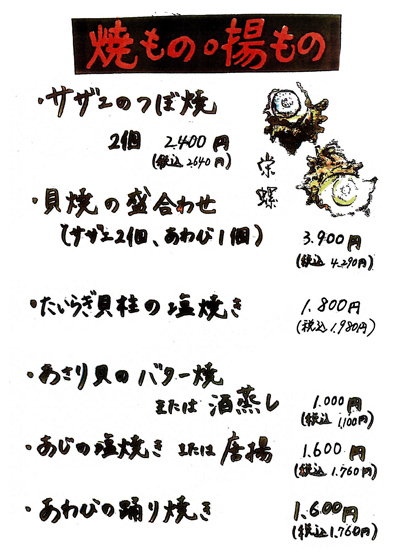 焼もの。揚もの
・サザエのつぼ焼
2個 2.400円
(税込 2.640円)
栄螺
・貝焼の盛合わせ
(サザエ2個、あわび1個) 3.900円
(税込 4.290円)
・たいらぎ貝柱の塩焼き 1.800円
(税込 1.980円)
・あさり貝のバター焼
または 酒蒸し 1.000円
(税込 1,100円)
・あじの塩焼き または 唐揚 1.600円
(税込 1.760円)
・あわびの踊り焼き 1.600円
(税込 1.760円)